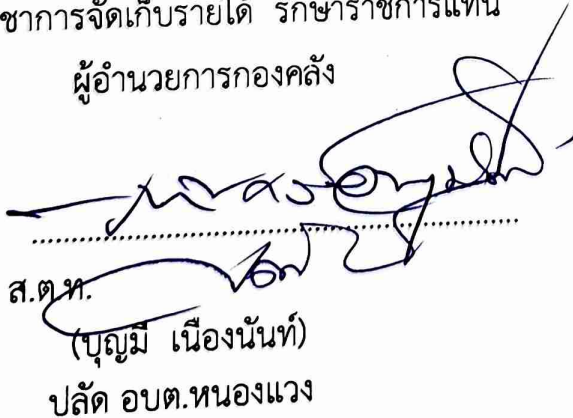 ชาการจัดเก็บรายได้ รักษาราชการแทน
ผู้อำนวยการกองคลัง
ส.ต.ท.
(บุญมี เนืองนันท์)
ปลัด อบต.หนองแวง